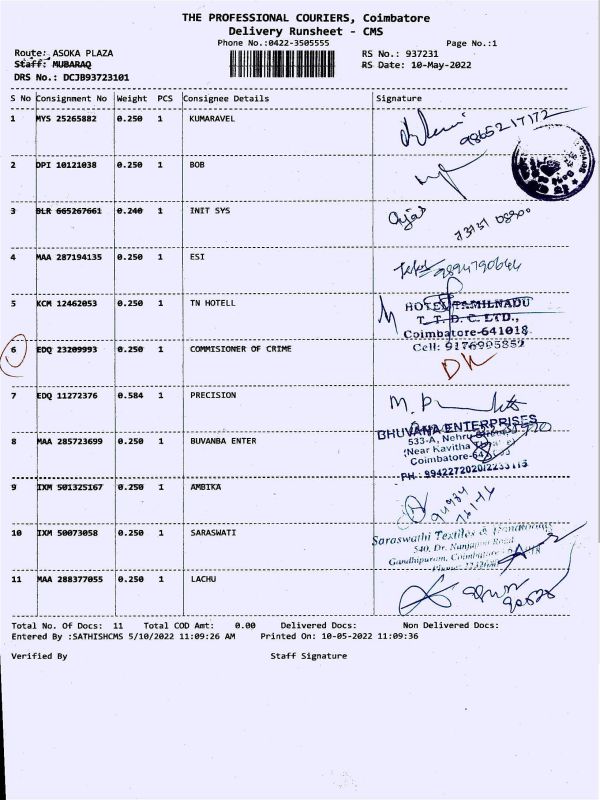 THE PROFESSIONAL COURIERS, Coimbatore
Delivery Runsheet - CMS
Phone No.:0422-3505555 Page No.:1
Route: ASOKA PLAZA RS No.: 937231
Staff: MUBARAQ RS Date: 10-May-2022
DRS No.: DCJB93723101
S No Consignment No Weight PCS Consignee Details Signature
1 MYS 25265882 0.250 1 KUMARAVEL 9865217172
2 DPI 10121038 0.250 1 BOB
3 BLR 665267661 0.240 1 INIT SYS
4 MAA 287194135 0.250 1 ESI 9894790644
5 KCM 12462053 0.250 1 TN HOTELL
HOTEL TAMILNADU
T. T. D. C. LTD.,
Coimbatore-641018
Cell: 9176995852
6 EDQ 23209993 0.250 1 COMMISIONER OF CRIME
7 EDQ 11272376 0.584 1 PRECISION
8 MAA 285723699 0.250 1 BUVANBA ENTER
BHUVANA ENTERPRISES
533-A, Nehru
(Near Kavitha
Coimbatore-
PH : 9942272020/2233113
9 IXM 501325167 0.250 1 AMBIKA
10 IXM 50073058 0.250 1 SARASWATI
Saraswathi Textiles &
540, Dr. Nanjappa Road
Gandhipuram, Coimbatore
11 MAA 288377055 0.250 1 LACHU
Total No. Of Docs: 11 Total COD Amt: 0.00 Delivered Docs: Non Delivered Docs:
Entered By :SATHISHCMS 5/10/2022 11:09:26 AM Printed On: 10-05-2022 11:09:36
Verified By Staff Signature